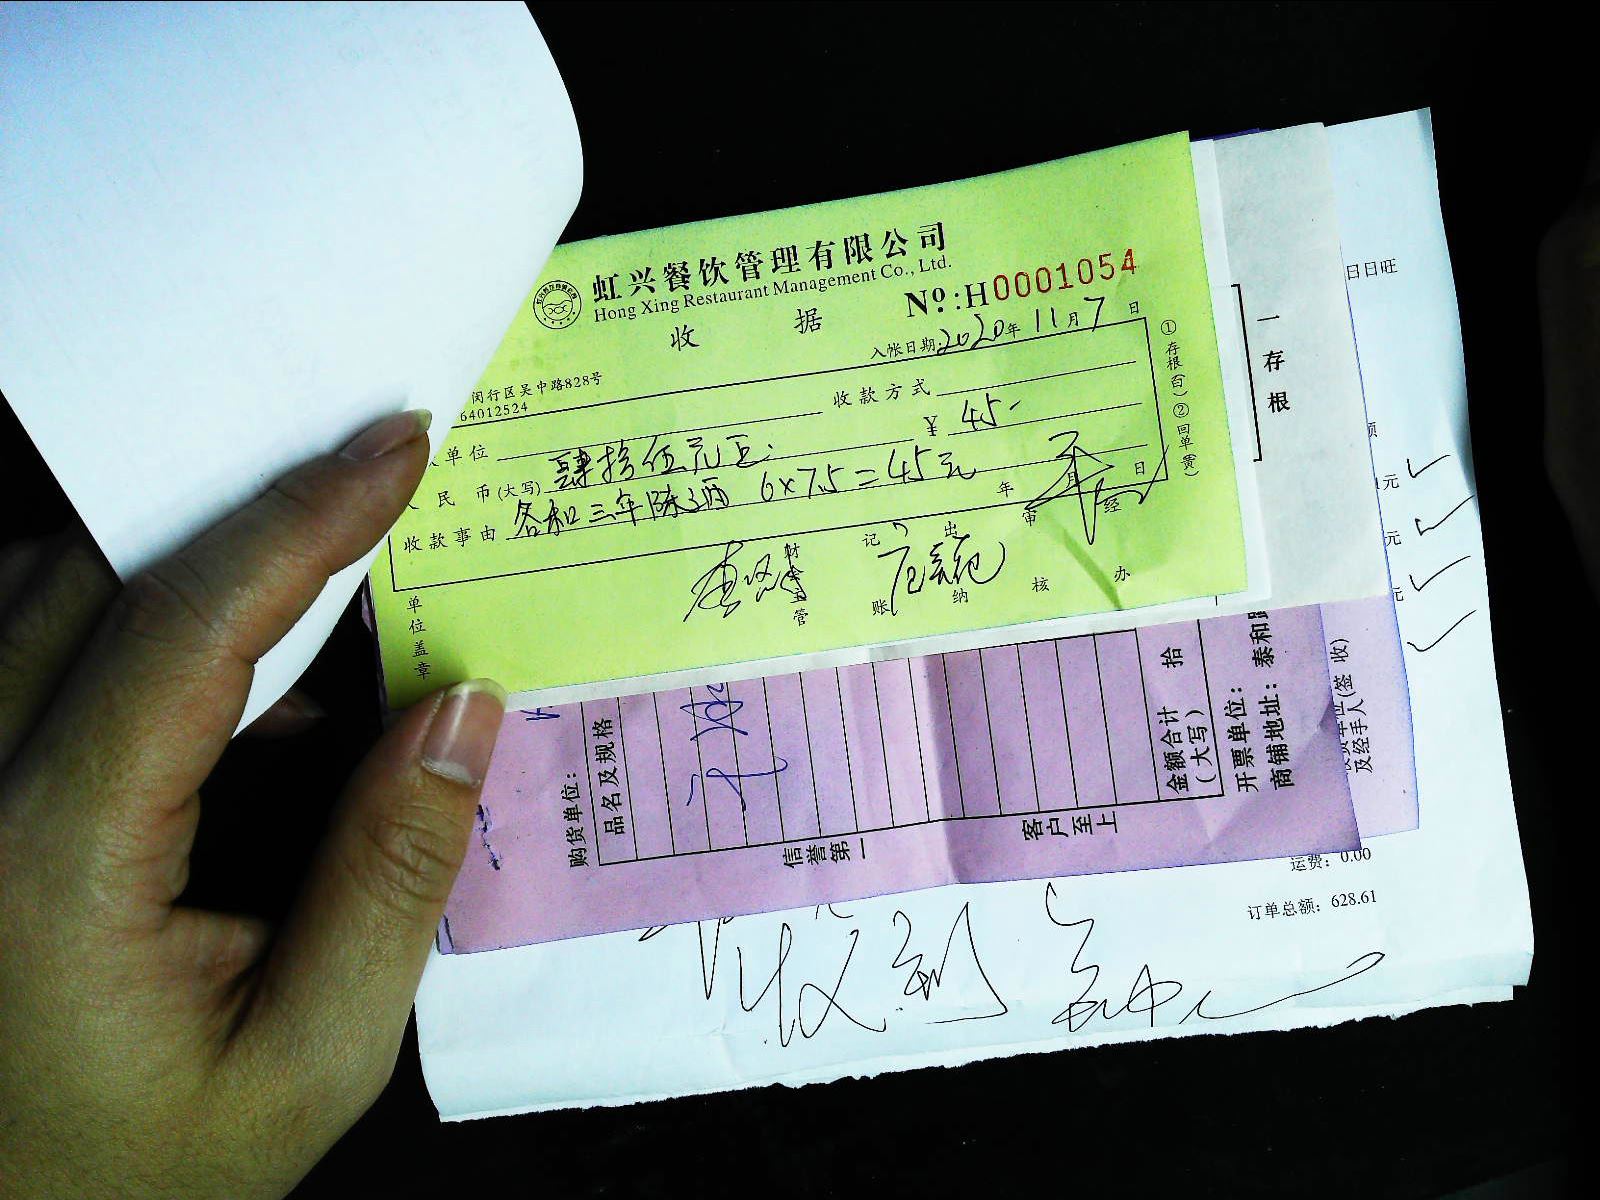 虹兴餐饮管理有限公司
Hong Xing Restaurant Management Co., Ltd.
收 据
No:H0001054
入帐日期:2020年11月7日
闵行区吴中路828号
64012524
收款方式
单位
¥ 45.-
民 币(大写) 肆拾伍元正
收款事由 三年陈酒 6×7.5=45元
年 月 日
单位盖章
财会主管
记账
出纳
审核
经办
①存根(白)②回单(黄)
一存根
日日旺
元
元
元
购货单位:
品名及规格
信誉第一
客户至上
金额合计
(大写)
拾
开票单位: 泰和
商铺地址:
及经手人(签 收)
运费: 0.00
订单总额: 628.61
收到